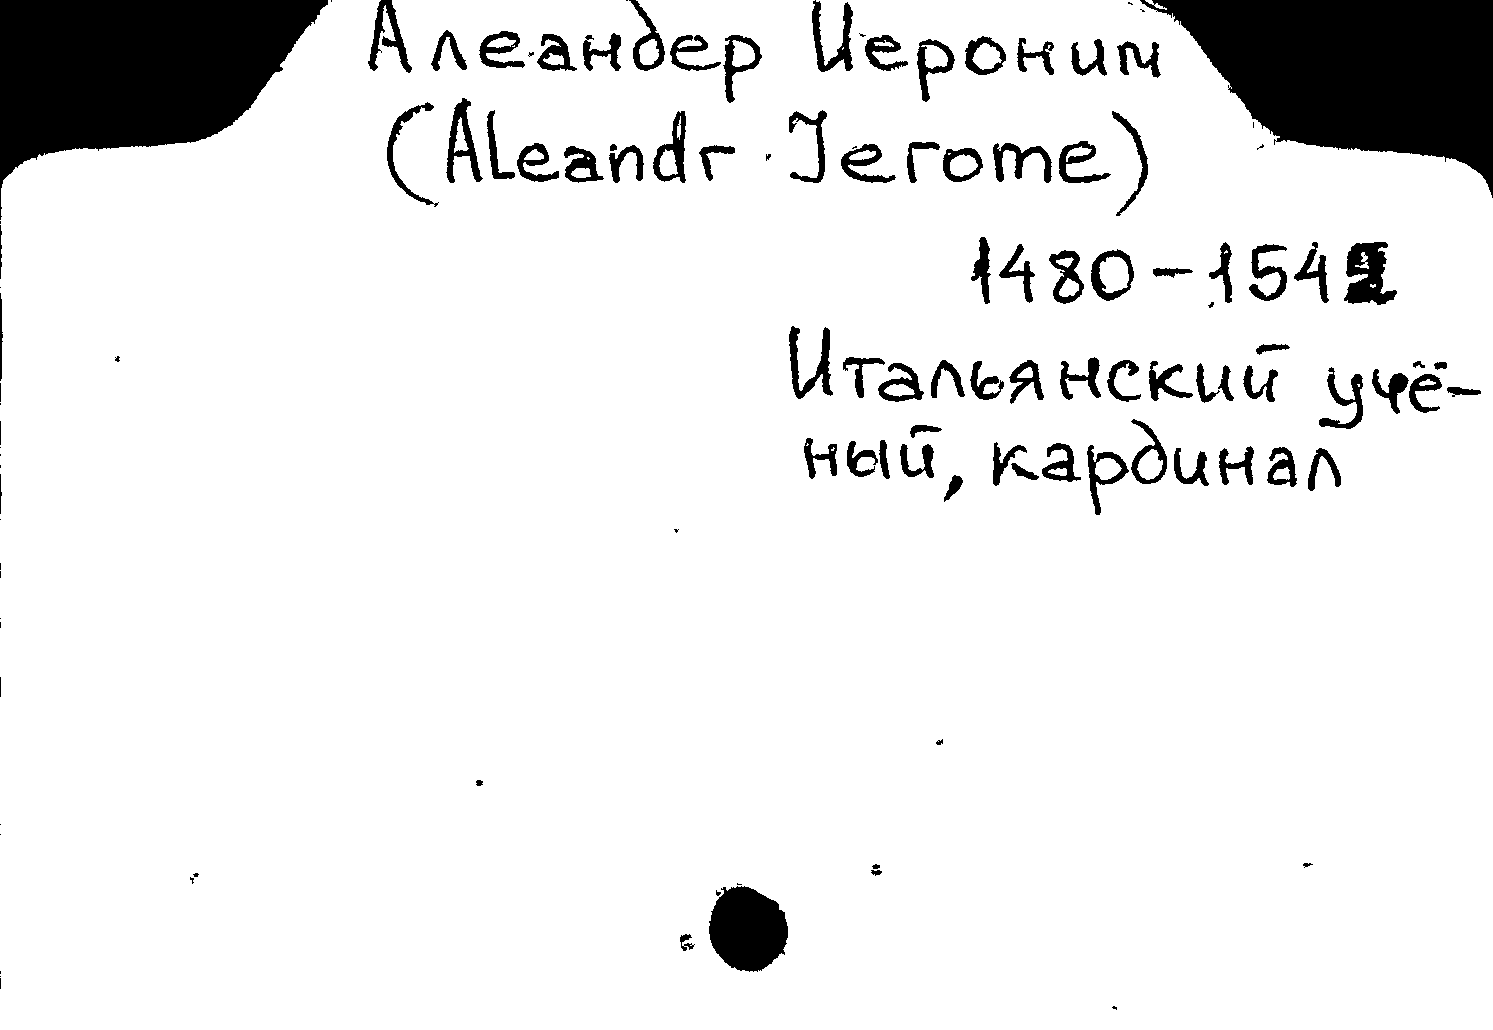 Алеандер Иероним
(ALeandr Jerome)
1480-1542
Итальянский учё-
ный, кардинал